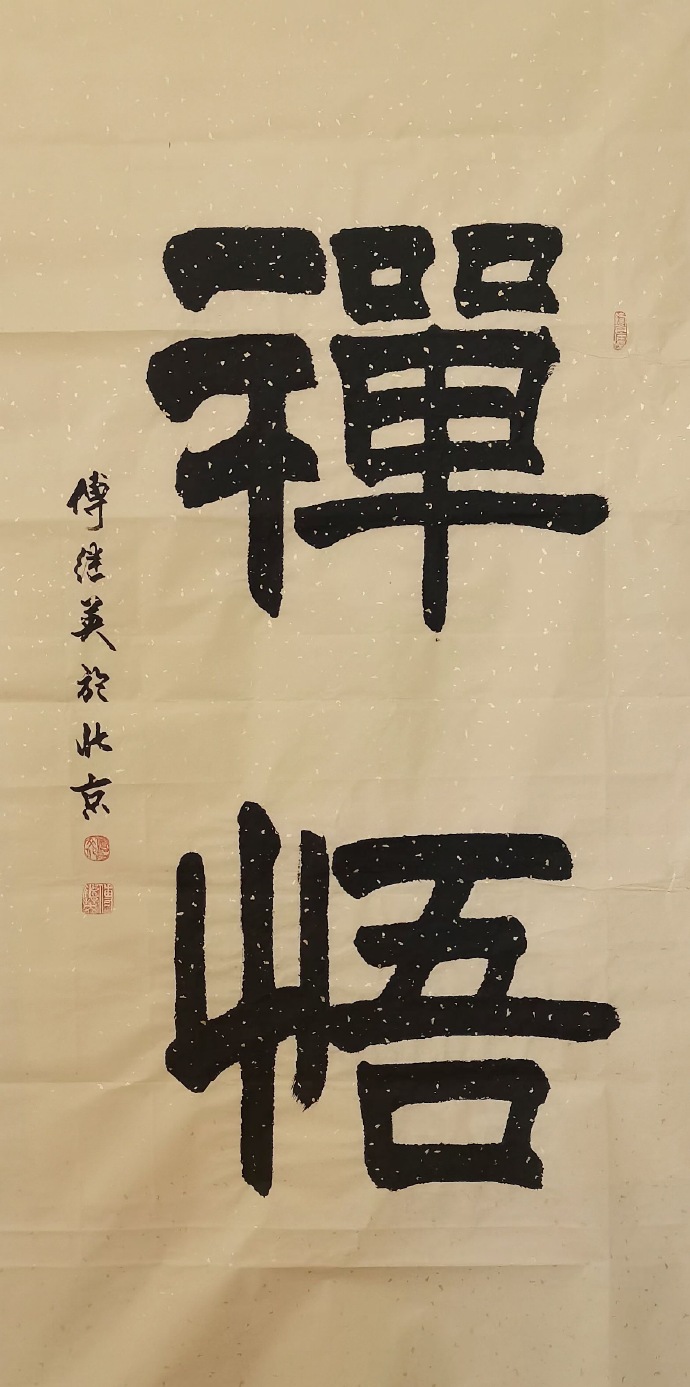 禪悟
傅继英於北京